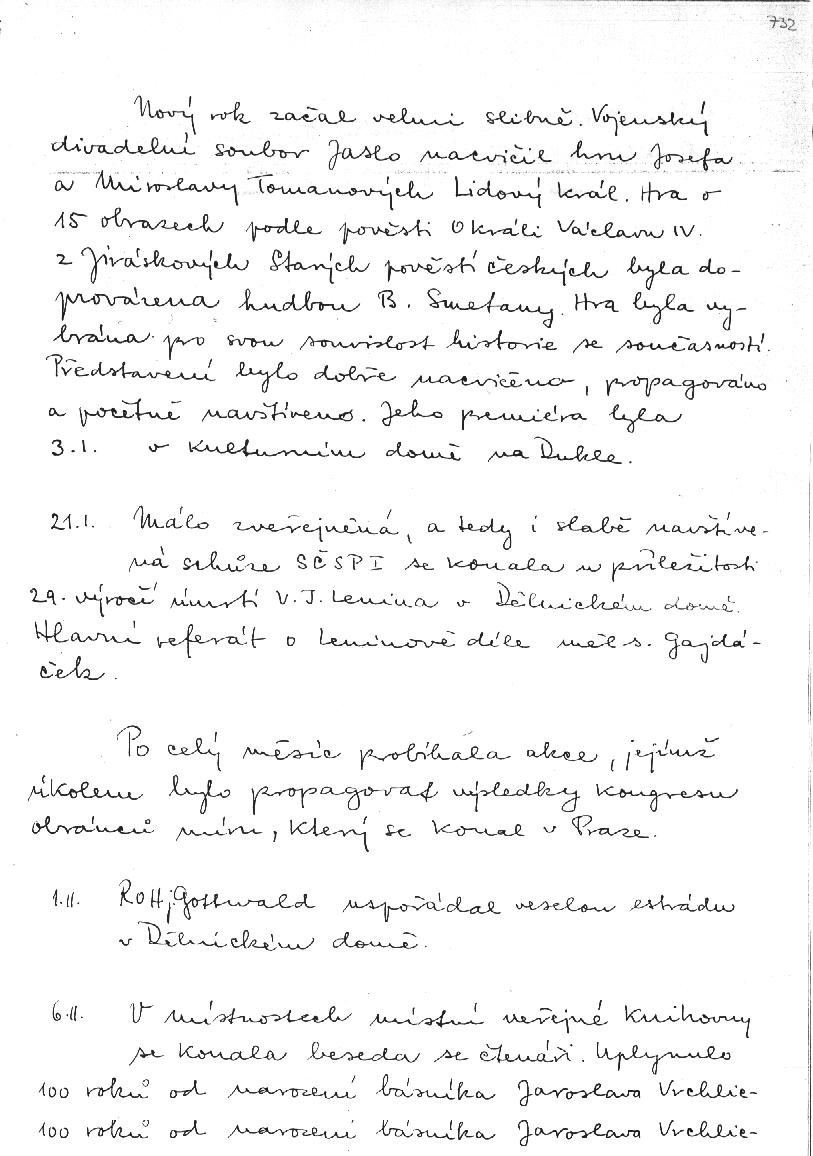 732
Nový rok začal velmi slibně. Vojenský
divadelní soubor Jaslo nacvičil hru Josefa
a Miroslavy Tomanových Lidový král. Hra o
15 obrazech podle pověsti O králi Václavu IV.
z Jiráskových Starých pověstí českých byla do-
provázena hudbou B. Smetany. Hra byla vy-
brána pro svou souvislost historie se současností.
Představení bylo dobře nacvičeno, propagováno
a početně navštíveno. Jeho premiéra byla
3.I. v kulturním domě na Dukle.
21.I. Málo zveřejněná, a tedy i slabě navštíve-
ná schůze SČSP I se konala u příležitosti
29. výročí úmrtí V. J. Lenina v Dělnickém domě.
Hlavní referát o Leninově díle měl s. Gajdá-
ček.
Po celý měsíc probíhala akce, jejímž
úkolem bylo propagovat výsledky kongresu
obránců míru, který se konal v Praze.
1.II. ROH j. Gottwald uspořádal veselou estrádu
v Dělnickém domě.
6.II. V místnostech místní veřejné knihovny
se konala beseda se čtenáři. Uplynulo
100 roků od narození básníka Jaroslava Vrchlic-
100 roků od narození básníka Jaroslava Vrchlic-